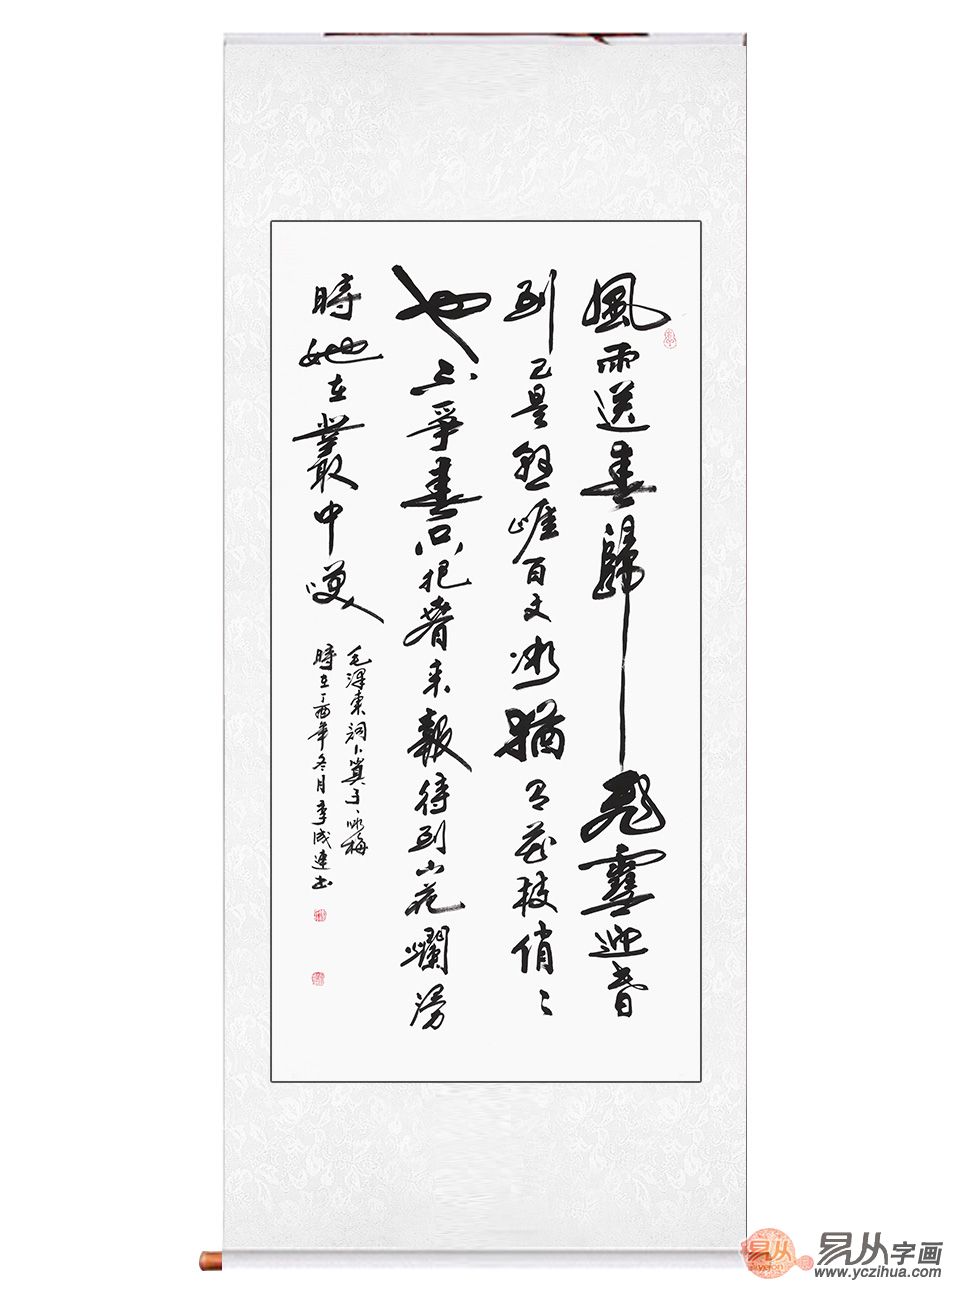 風雨送春歸飛雪迎春
到已是懸崖百丈冰猶有花枝俏俏
也不爭春只把春來報待到山花爛漫
時她在叢中笑
毛澤東詞卜算子·咏梅
時在丁酉年冬月李成連書
易从字画
www.yczihua.com